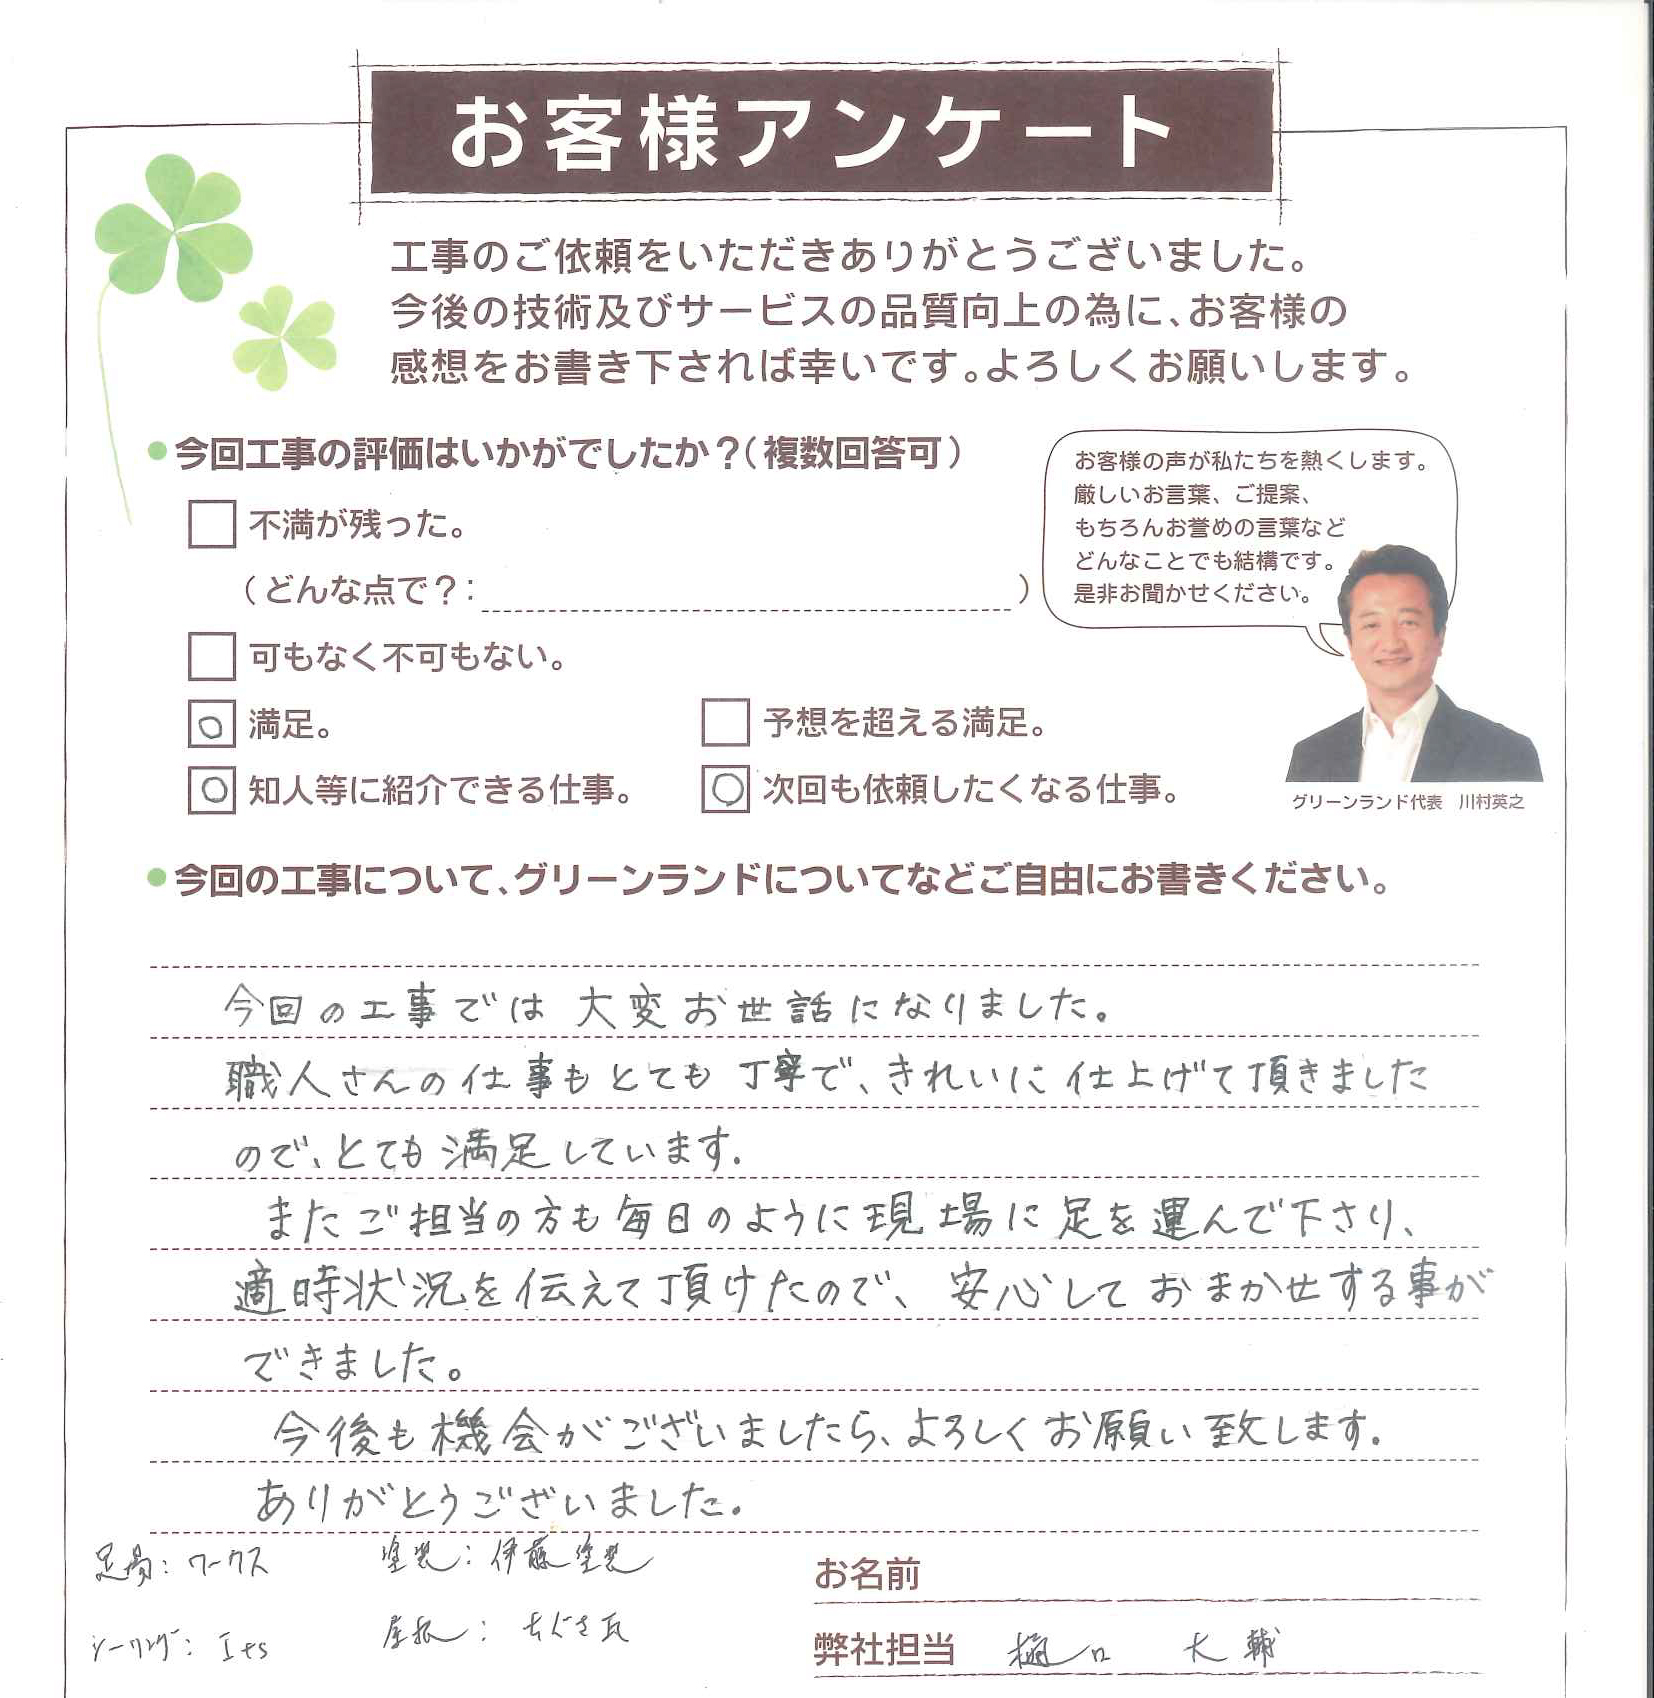 お客様アンケート
工事のご依頼をいただきありがとうございました。
今後の技術及びサービスの品質向上の為に、お客様の
感想をお書き下されば幸いです。よろしくお願いします。
今回工事の評価はいかがでしたか？（複数回答可）
不満が残った。
（どんな点で？： ）
可もなく不可もない。
○ 満足。
予想を超える満足。
○ 知人等に紹介できる仕事。
○ 次回も依頼したくなる仕事。
お客様の声が私たちを熱くします。
厳しいお言葉、ご提案、
もちろんお誉めの言葉など
どんなことでも結構です。
是非お聞かせください。
グリーンランド代表　川村英之
今回の工事について、グリーンランドについてなどご自由にお書きください。
今回の工事では大変お世話になりました。
職人さんの仕事もとても丁寧で、きれいに仕上げて頂きました
ので、とても満足しています.
またご担当の方も毎日のように現場に足を運んで下さり、
適時状況を伝えて頂けたので、安心しておまかせする事が
できました。
今後も機会がございましたら、よろしくお願い致します.
ありがとうございました.
足場：ワークス
塗装：伊藤塗装
シーリング：Its
屋根：ちぐさ瓦
お名前
弊社担当　樋口　大輔